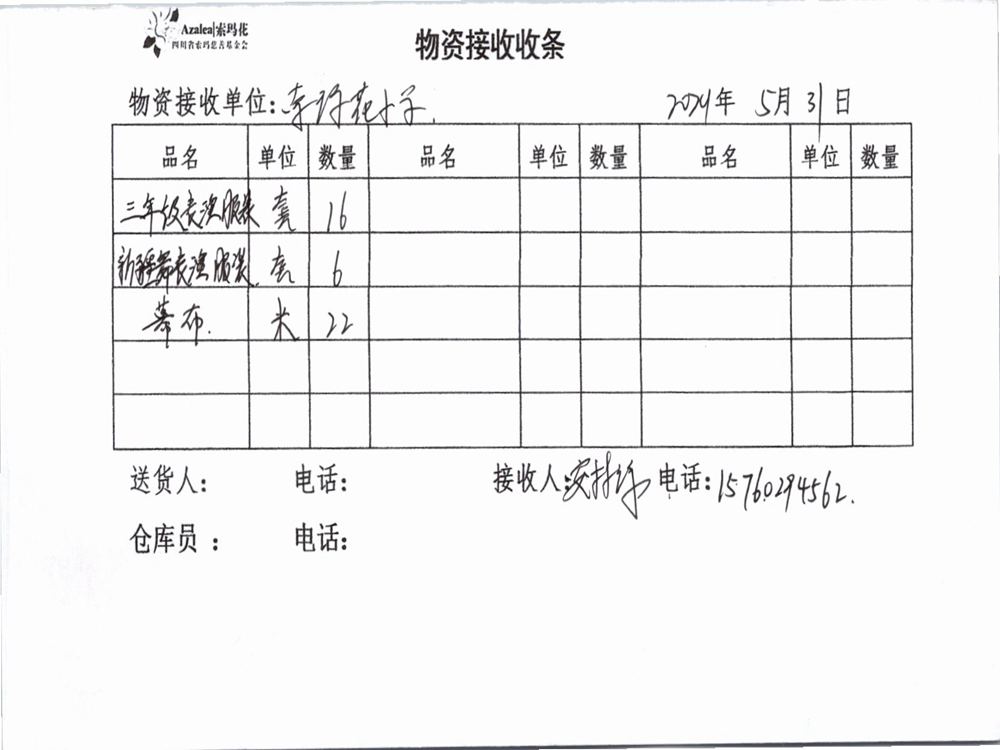 Azalea|索玛花
四川省索玛慈善基金会
物资接收收条
物资接收单位:索玛花小学. 2024年 5月 31日
品名 单位 数量 品名 单位 数量 品名 单位 数量
三年级表演服装 套 16
新疆舞表演服装. 套 6
幕布. 米 22
送货人: 电话: 接收人: 电话:15760294562.
仓库员 : 电话: